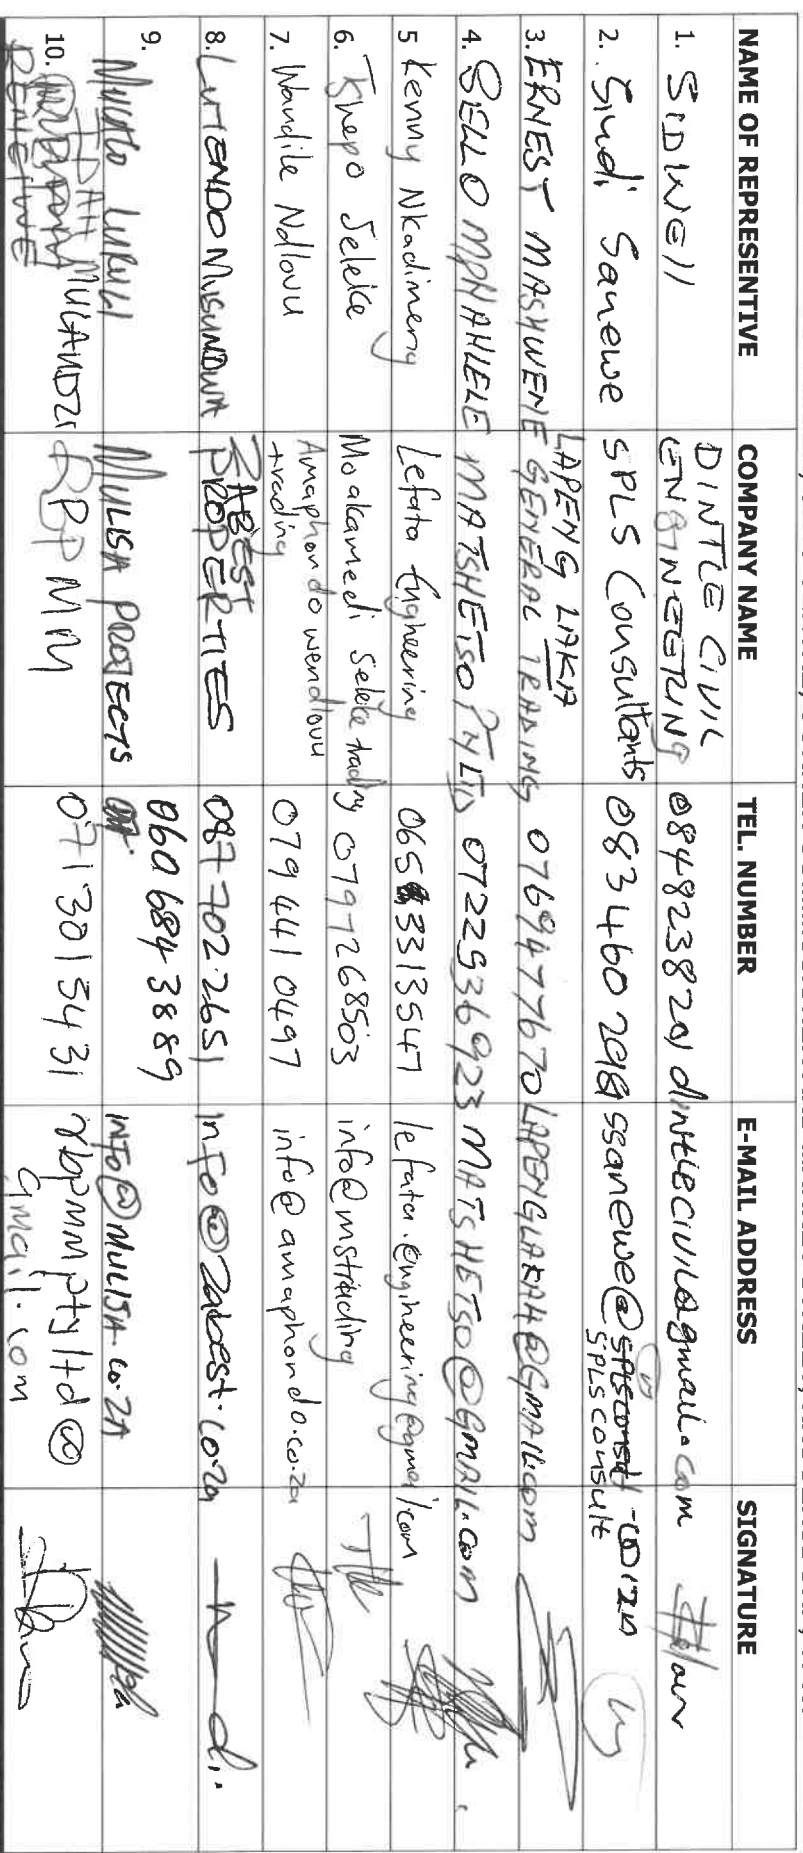 NAME OF REPRESENTIVE COMPANY NAME TEL. NUMBER E-MAIL ADDRESS SIGNATURE
1. SIDWEll DINTLE CIVIL ENGINEERING 0848238201 dintlecivil@gmail.com
2. Sindi Sanewe SPLS Consultants 083 460 ssanewe@ splsconsult .co.za
3. ERNEST MASHWENE LAPENG LAKA GENERAL TRADING 0769477670 LAPENGLAKAH@GMAIL.COM
4. SELLO MPHAHLELE MATSHETSO PTY LTD 0722936923 MATSHETSO@GMAIL.COM
5 Kenny Nkadimeng Lefata Engineering 065 3313547 lefata.engineering@gmail.com
6. Tshepo Seleke Moakamedi Seleke trading 0797268503 info@mstrading
7. Wandile Ndlovu Amaphondo wendlovu trading 079 441 0497 info@amaphondo.co.za
8. LUTENDO MUSUNDWA ZABEST PROPERTIES 087 702 2651 info@zabest.co.za
9. MULALO LUKULI MULISA PROJECTS 060 684 3889 INFO@MULISA.CO.ZA
10. IDAH MULAUDZI REHEITWE RBPMM 0713015431 rbpmmptyltd@ gmail.com